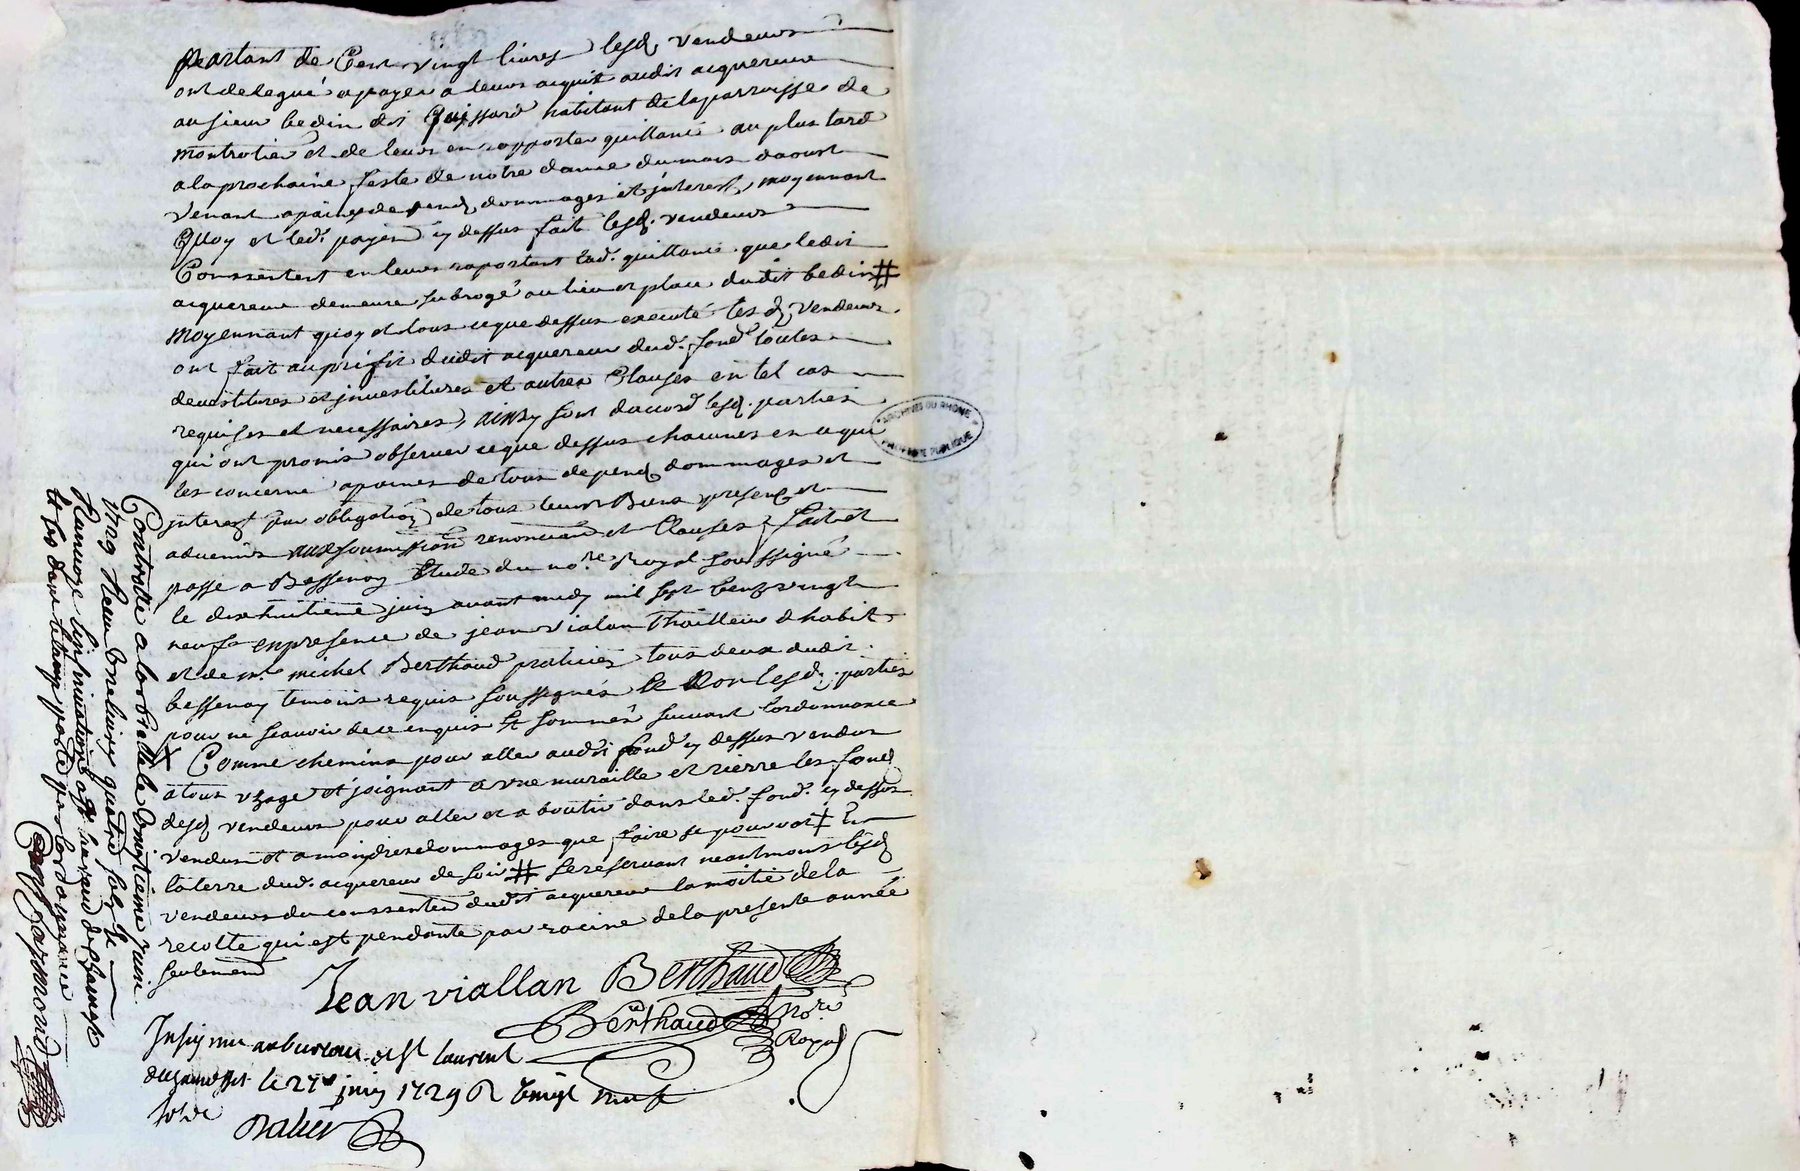 partant de Cent vingt livres lesd. vendeurs
ont delegué a payer a leurs acquit audit acquereur
au sieur bedin dit habitant de la parroisse de
montrotier et de leurs en rapporter quittance au plus tard
a la prochaine feste de notre dame du mois daoust
venant a paine de pend dommages et jnterest, moyennant
Quoy et led. payem cy dessus fait lesd. vendeurs
Conssentent en leurs raportant lad. quittance que ledit
acquereur demeure subrogé au lieu et place dudit bedin #
moyennant quoy et tous ceque dessus executé les d. vendeurs
ont fait au profit dudit acquereur dud. fond toutes
devestitures et jnvestitures et autres Clauses en tel cas
requises et necessaires, ainsy sont daccord lesd. parties
qui ont promis observer ceque dessus chacunes en ce qui
les concerne a paines de tous depend dommages et
jnterest par obligation de tous leurs Biens presend et
advenirs aux soumission renonciaon et Clauses, fait et
passé a Bessenay Etude du no.re Royal soussigné
le dixhuitieme juin avant midy mil sept Cent vingt
neuf en presence de jean vialan Thailleur dhabit
et de m.e michel Berthaud praticien tous deux dudit
bessenay temoins requis soussignés Et Non lesd. parties
pour ne scavoir de ce enquis Et sommés suivant lordonnance
X Comme chemins pour aller audit fond cy dessus vendus
a tous usage et joignant a une muraille et rierre les fond
desd vendeurs pour aller et aboutir dans led. fond. cy dessus
vendus et a moindres dommages que faire se pourrat ‡ Et
la terre dud. acquereur de soir # Se reservant neantmoins lesd
vendeurs du conssentem dudit acquereur la moitié de la
recolte qui est pendante par racine de la presente année
seulement
Jean viallan Berthaud
Berthaud No.re
Royal
Insinué au bureau de St laurent
de chamousset le 27e juin 1729 R vingt neuf
sols
Controllé a la bresle le vingtieme juin
1729 Reçu
Renvoyé l'insinuation au bureau de Chamousset